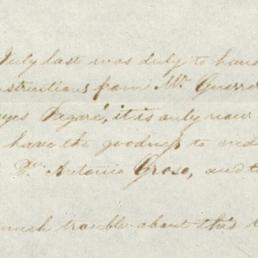 July last was duly to hand
instructions from Mr. Guerre
yes Pagaré, it is only now
have the goodness to
Dn. Antonio Groso, and t
much trouble about this